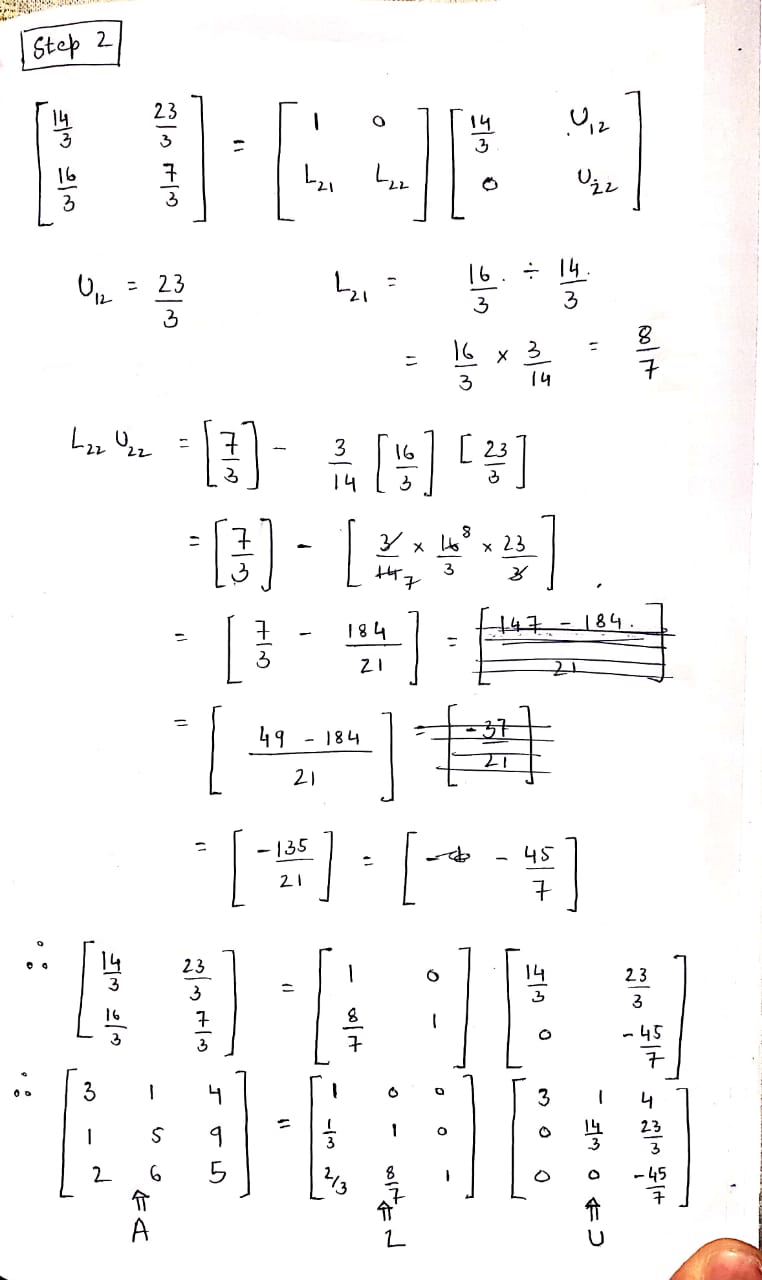 Step 2
[14/3 23/3; 16/3 7/3] = [1 0; L21 L22] [14/3 U12; 0 U22]
U12 = 23/3 L21 = 16/3 ÷ 14/3
= 16/3 x 3/14 = 8/7
L22 U22 = [7/3] - 3/14 [16/3] [23/3]
= [7/3] - [3/14 7 x 16 8/3 x 23/3]
= [7/3 - 184/21] = [147 - 184./21]
= [49 - 184/21] = [-37/21]
= [-135/21] = [- 45/7]
∴ [14/3 23/3; 16/3 7/3] = [1 0; 8/7 1] [14/3 23/3; 0 -45/7]
∴ [3 1 4; 1 5 9; 2 6 5] = [1 0 0; 1/3 1 0; 2/3 8/7 1] [3 1 4; 0 14/3 23/3; 0 0 -45/7]
⇑ ⇑ ⇑
A L U